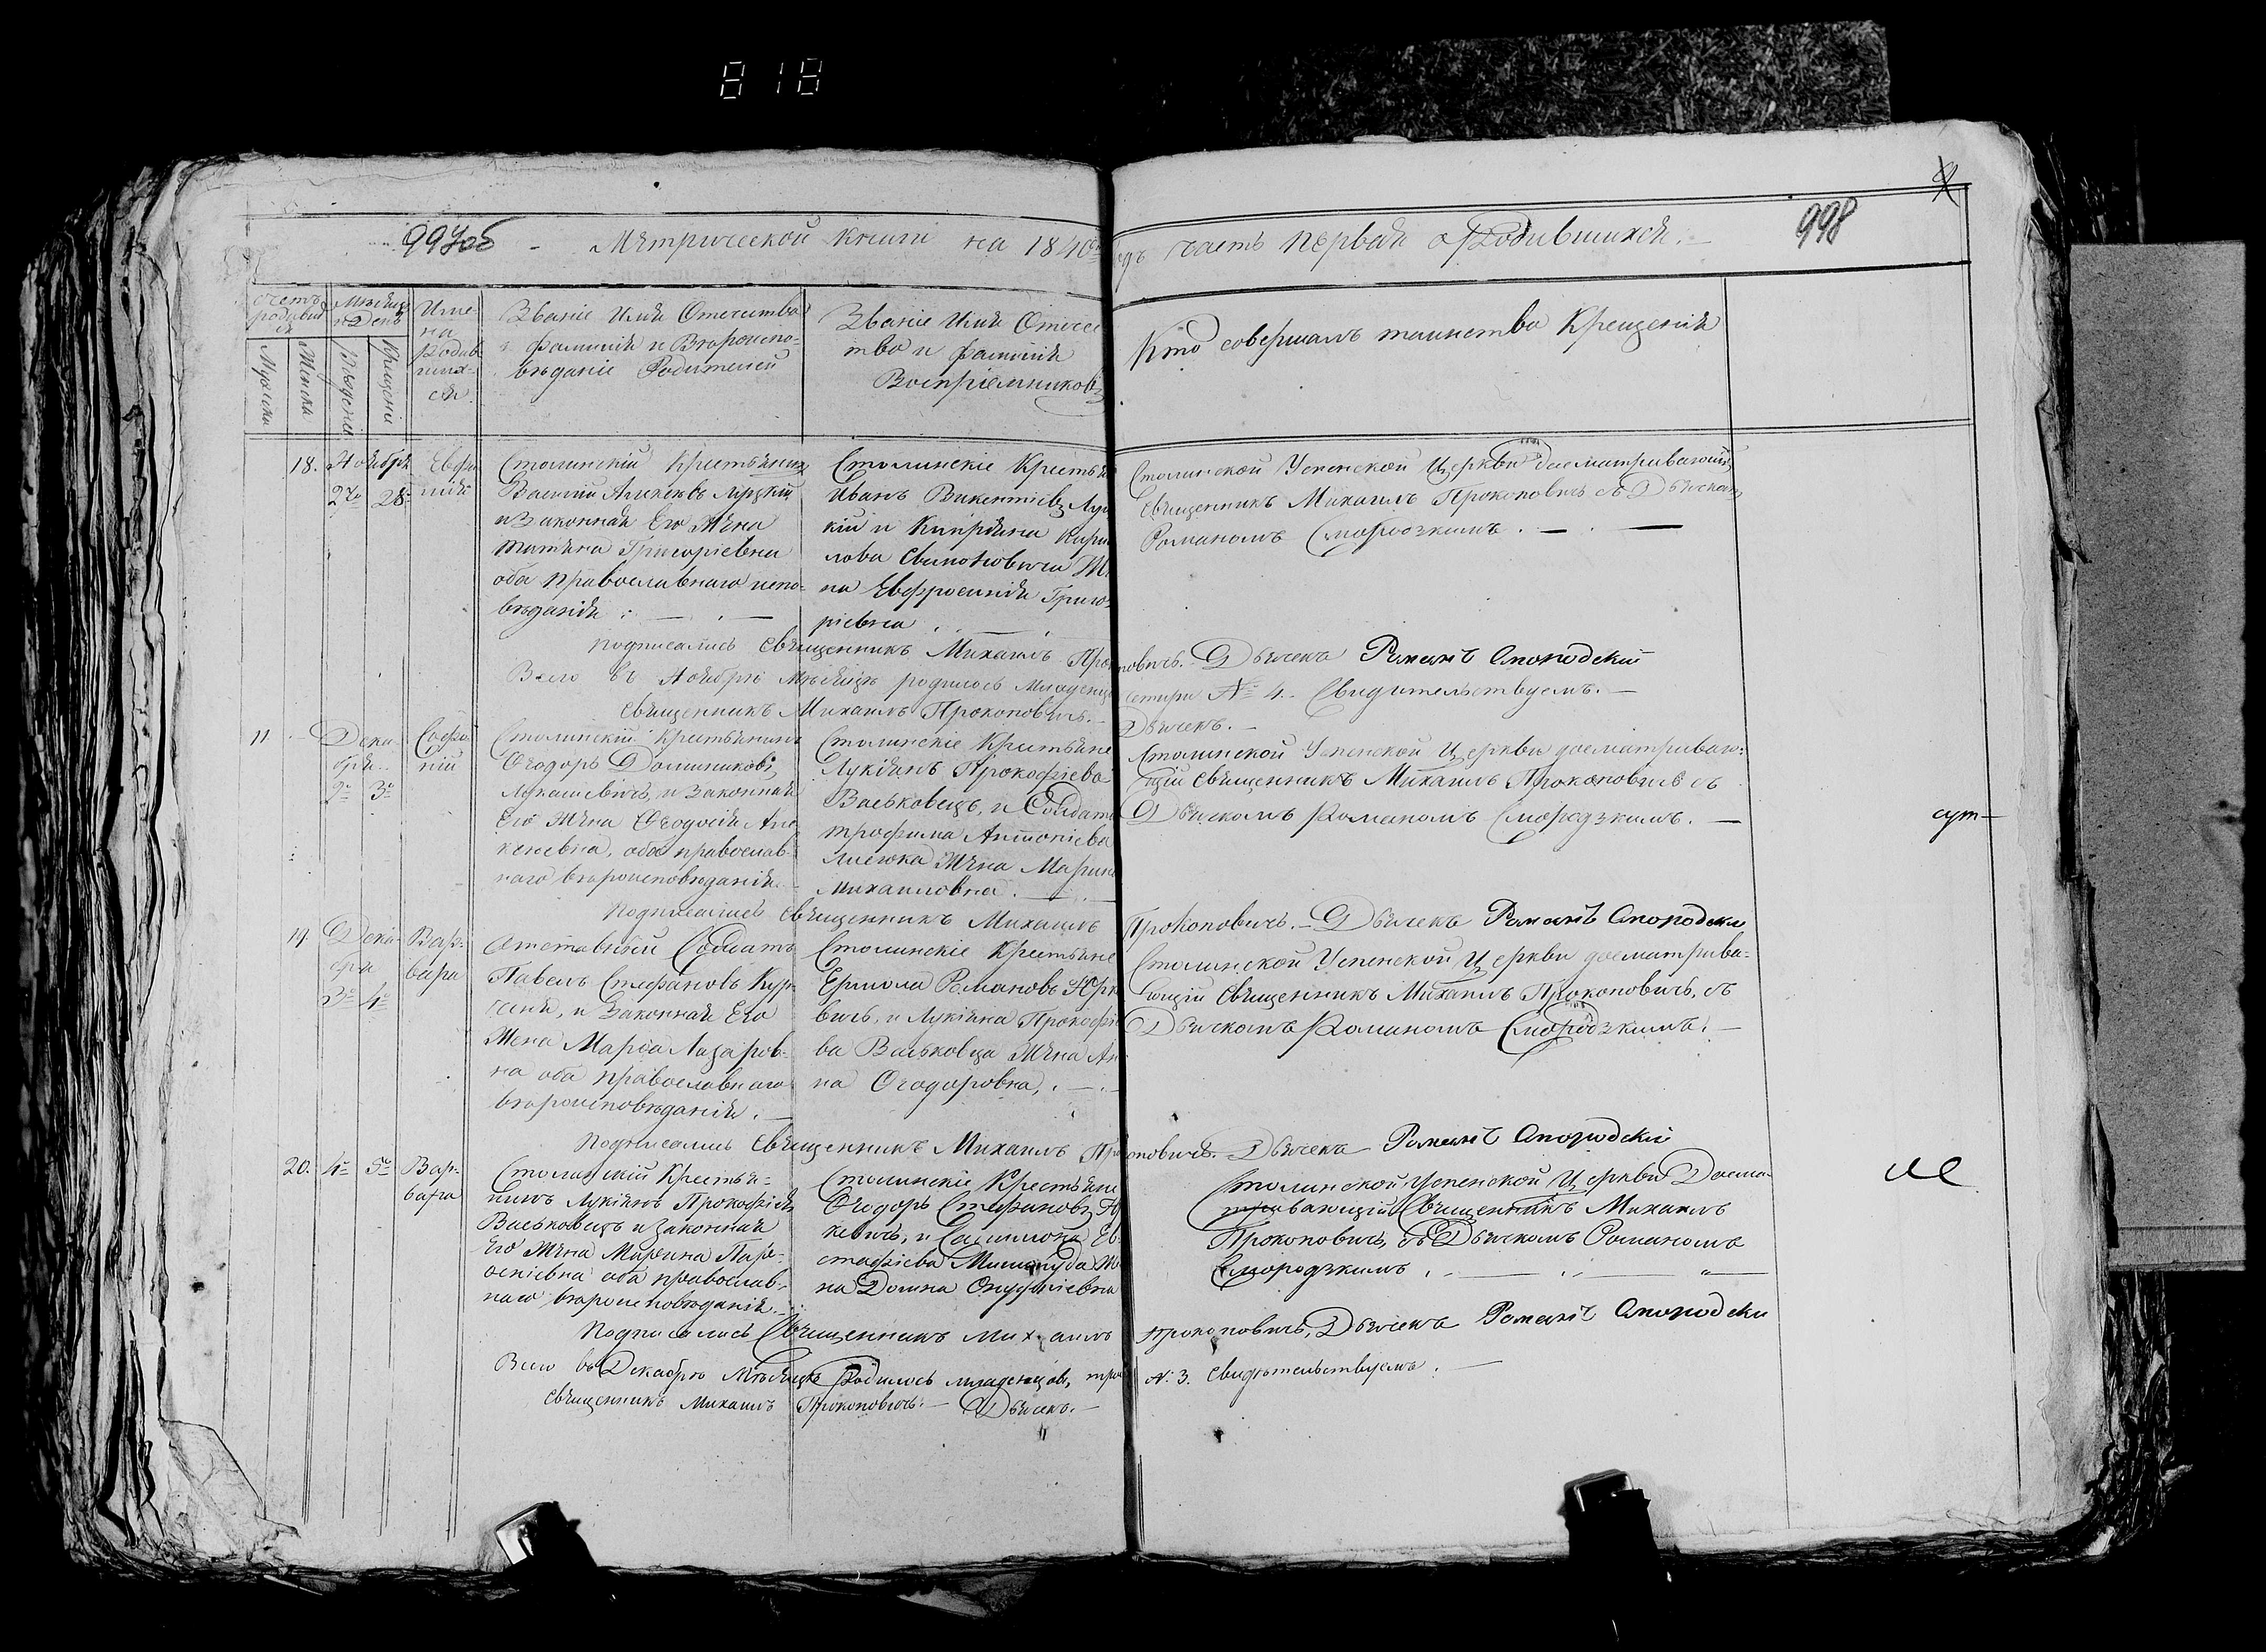 818
997об - Метрической книги на 1840й годъ часть первая о Родившихся. 998
Счетъ родивших
ся
Мѣсяцъ
и День
Име
на
Родив
ших-
ся.
Мужеска
Женска
Рожденія
Крещенія
Званіе Имя Отечества
и Фамилія и Вѣроиспо-
вѣданіе Родителей
Званіе Имя Отечес
тво и фамилія
Воспріемниковъ
Кто совершалъ таинство Крещенія
18. Ноября 27го 28го
Евфи
мія
Столинскій Крестьянинъ
Василій Луцкій
и Законная Его Жена
Татьяна Григоріевна
оба православнаго испо-
вѣданія
Столинскіе Крестья
Иванъ Викентіевъ Луц
кій и Кипріяна Кири
лова Же
на Евфросинія Григо
ріевна
Столинской Успенской Церкви досматривающій
Священникъ Михаилъ Прокоповичъ съ Дьячкомъ
Романомъ Смородзкимъ.
Подписались Священникъ Михаилъ Прокоповичъ. Дьячекъ Романъ Смородский
Всего въ Ноябрѣ Мѣсяцѣ родилось Младенцо четыри № 4. Свидительствуемъ.
Священникъ Михаилъ Прокоповичъ. Дьячекъ.
11. Дека
бря
2го 3го
Софо
ній
Столинскій Крестьянинъ
Ѳеодоръ Доминиковъ
Лукашевичъ, и Законная
Его Жена Ѳеодосія Але
ксевна, оба православ-
наго вѣроисповѣданія.
Столинскіе Крестьяне
Лукіянъ Прокофіевъ
Васьковецъ, и Солдата
Трофима Антоніева
Жена Марина
Михаиловна.
Столинской Успенской Церкви досматриваю-
щій Священникъ Михаилъ Прокоповичъ съ
Дьячкомъ Романомъ Смородзкимъ.
Подписались Священникъ Михаилъ Прокоповичъ. Дьячекъ Романъ Смородски
19. Дека
бря
3го 4го
Вар-
вара
Отставный Солдатъ
Павелъ Стефановъ
и Законная Его
Жена Марія Лазаров-
на оба православнаго
вѣроисповѣданія.
Столинскіе Крестьяне
Ермола Романовъ Юрке
вичъ, и Лукіяна Прокофіе
ва Васьковца Жена Ан
на Ѳеодоровна,
Столинской Успенской Церкви досматрива-
ющій Священникъ Михаилъ Прокоповичъ, съ
Дьячкомъ Романомъ Смородзкимъ.
Подписались Священникъ Михаилъ Прокоповичъ. Дьячекъ Романъ Смородский
20. 4го 5го
Вар-
вара
Столинскій Крестья-
нинъ Лукіянъ Прокофіевъ
Васьковецъ и Законная
Его Жена Марина
оба православ-
наго вѣроисповѣданія.
Столинскіе Крестьяне
Ѳеодоръ Стефановъ Юр
кевичъ, и Ев
стафіева Же
на Домна Онуфріевна
Столинской Успенской Церкви Досма-
тривающій Священникъ Михаилъ
Прокоповичъ, съ Дьячкомъ Романомъ
Смородзкимъ
Подписались Священникъ Михаилъ Прокоповичъ, Дьячекъ Романъ Смородски
Всего въ Декабрѣ Мѣсяцѣ Родилось младенцовъ, три № 3. Свидѣтельствуемъ.
Священникъ Михаилъ Прокоповичъ. Дьячекъ.